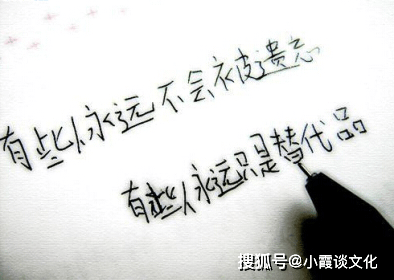 有些人永远不会被遗忘
有些人永远只是替代品
搜狐号@小霞谈文化